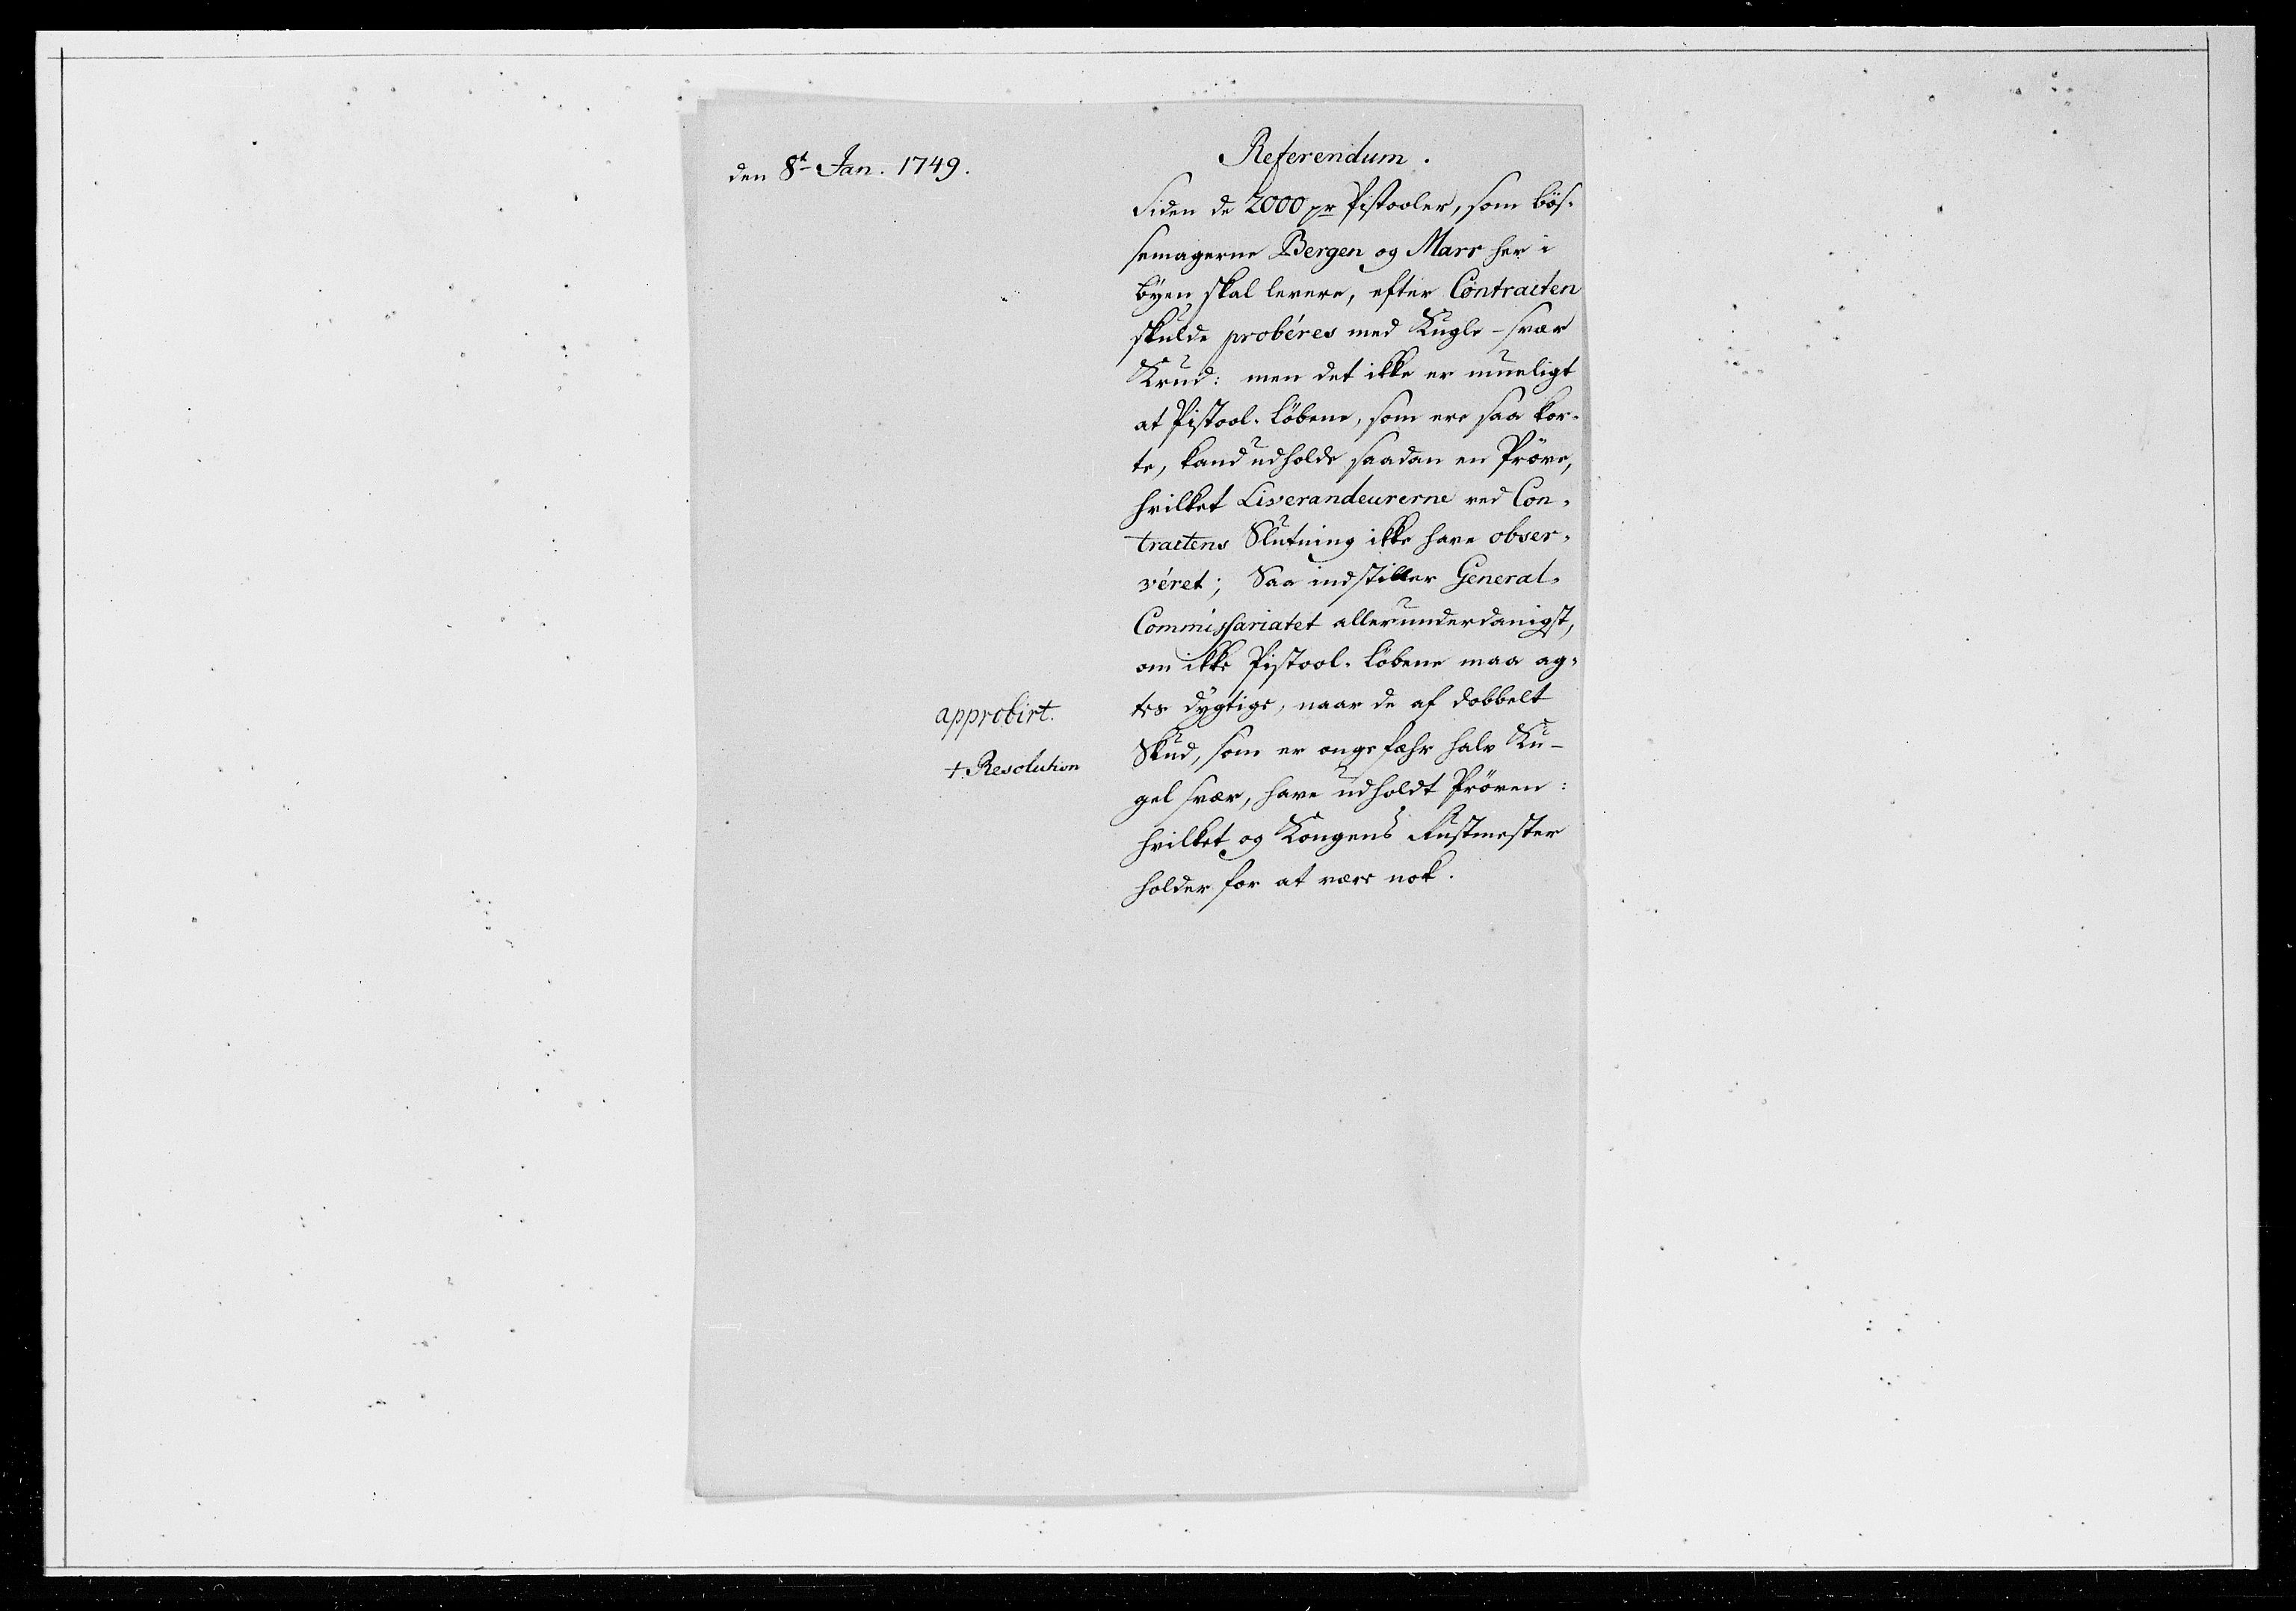 den 8t Jan. 1749.
Referendum.
Siden de 2000 pr Pistooler, som bös-
semagerne Bergen og Marr her i
byen skal levere, efter Contracten
skulde probéres med Kugle-svær
Krud: men det ikke er mueligt
at Pistool-Löbene, som ere saa kor-
te, kand udholde saadan en Pröve,
hvilket Liverandeurerne ved Con-
tractens Slutning ikke have obser-
véret; Saa indstiller General-
Commissariatet allerunderdanigst,
om ikke Pistool-Löbene maa ag-
tes dygtige, naar de af dobbelt
Skud, som er ongefæhr halv Ku-
gel svær, have udholdt Pröven:
hvilket og Kongens Rustmester
holder for at være nok.
approbirt.
+ Resolution